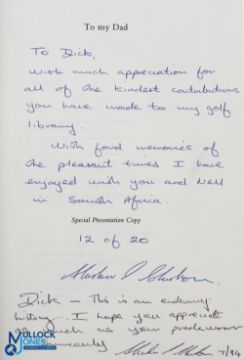 To my Dad
To Dick,
With much appreciation for
all of the kindest contributions
you have made to my golf
library.
With fond memories of
the pleasant times I have
enjoyed with you and Nell
in South Africa.
Special Presentation Copy
12 of 20
Dick - This is an
history. I hope you appreciate
as much as your predecessor
7/94
MULLOCK
JONES